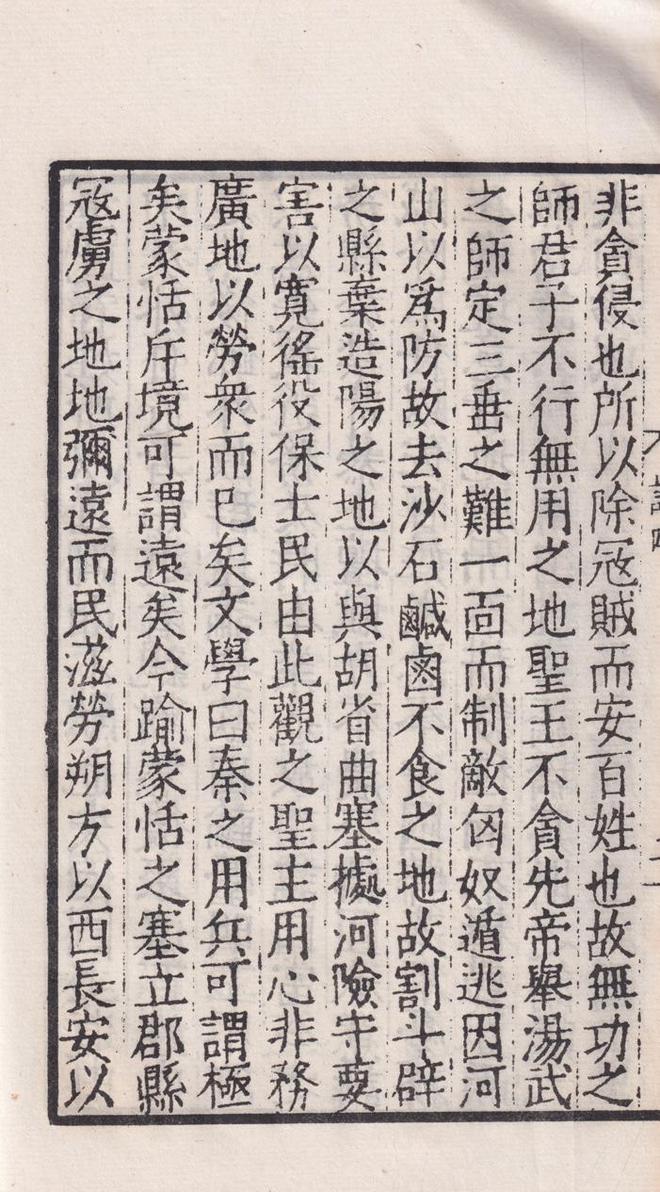 非貪侵也所以除宼賊而安百姓也故無功之
師君子不行無用之地聖王不貪先帝舉湯武
之師定三垂之難一面而制敵匈奴遁逃因河
山以爲防故去沙石鹹鹵不食之地故割斗辟
之縣棄造陽之地以與胡省曲塞據河險守要
害以寬徭役保士民由此觀之聖主用心非務
廣地以勞衆而巳矣文學曰秦之用兵可謂極
矣蒙恬斥境可謂遠矣今踰蒙恬之塞立郡縣
宼虜之地地彌遠而民滋勞朔方以西長安以